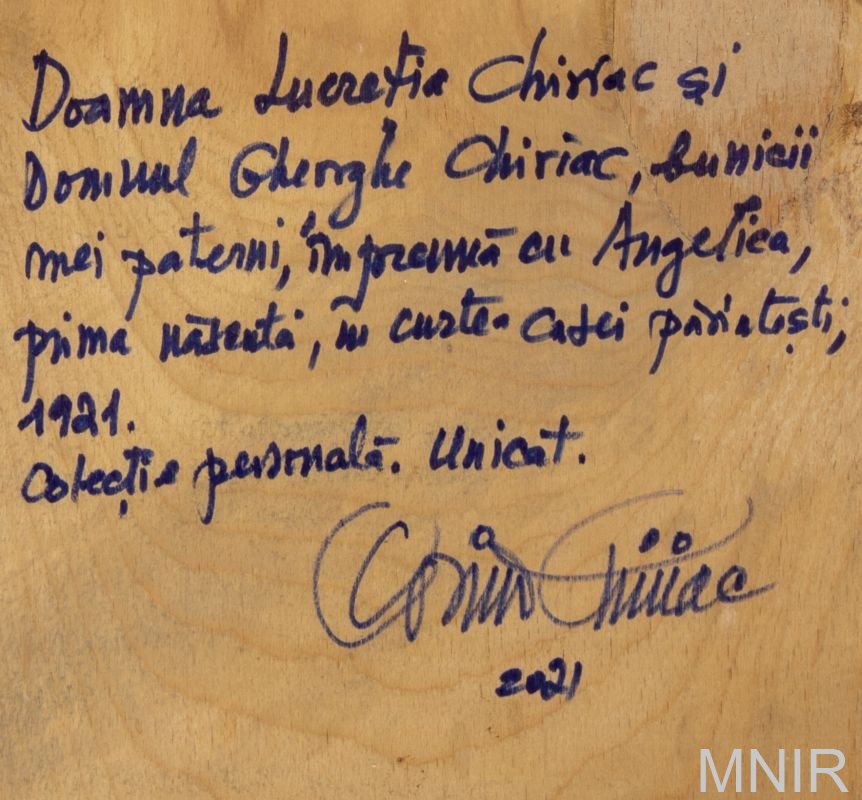 Doamna Lucreția Chiriac și
Domnul Gheorghe Chiriac, bunicii
mei paterni, împreună cu Angelica,
prima născută, în curtea casei părintești,
1921.
Colecție personală. Unicat.
Chiriac
2021
MNIR